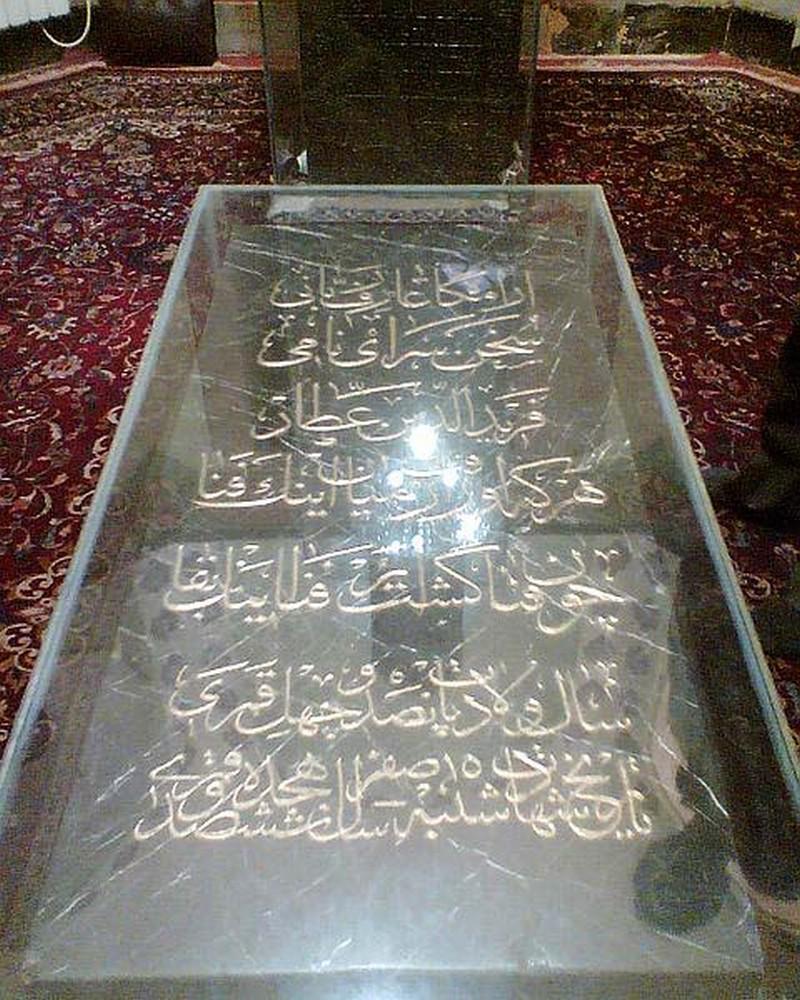 آرامگاه عارف نامی
سخن سرای نامی
فرید الدین عطار
هر که او رفت از میان اینک فنا
چون فنا گشت از فنا اینک بقا
سال ولادت پانصد و چهل قمری
تاریخ شهادت ۱۰ صفر سال ششصد هجده قمری